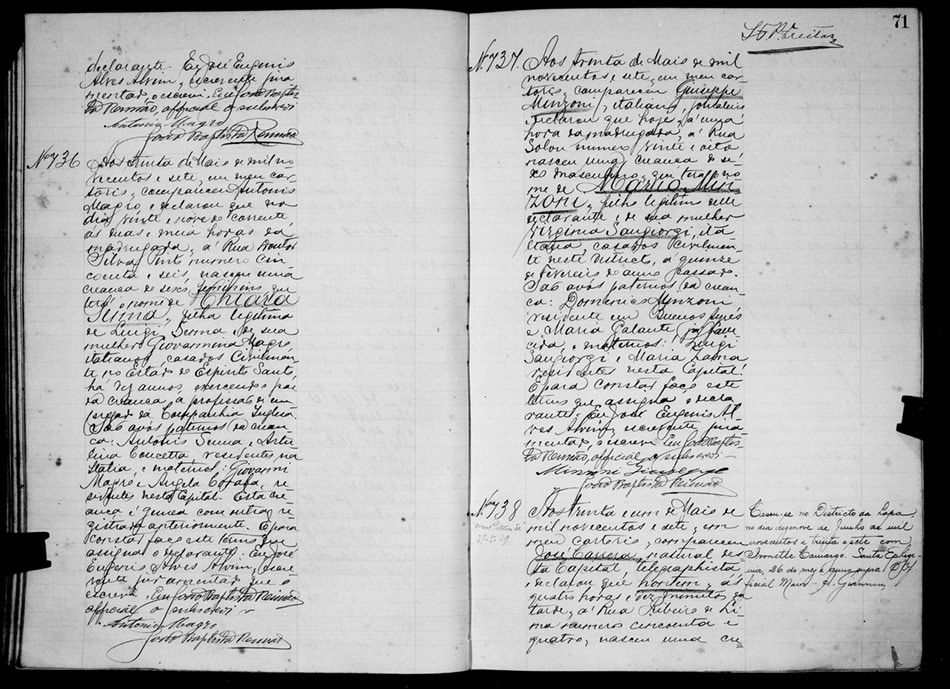 declarante. Eu José Eugenio
Alves Alvim, escrevente jura
mentado, o escrevi. Eu João Baptis
ta Reimão, official o subscrevi
Antonio Magro
João Baptista Reimão
Nº 736 Aos trinta de Maio de mil no
vecentos e sete, em meu car
torio, compareceu Antonio
Magro, e declarou que no
dia vinte e nove do corrente
ás duas e meia horas da
madrugada, á Rua
Silva Pinto numero cin
coenta e seis, nasceu uma
creança de sexo feminino que
terá o nome de Chiara
Senna, filha legitima
de Luigi Senna e de sua
mulher Giovannina Magro,
italianos, casados civilmen
te no Estado do Espirito Santo,
ha dez annos, exercendo o pai
da creança a profissão de em
pregado da Companhia Ingleza
São avós paternos da crean
ça: Antonio Senna e
Concetta, residentes na
Italia, e maternos: Giovanni
Magro e Angela, re
sidentes nesta Capital. Esta cre
ança é gemea com outra, re
gistrada anteriormente. E para
constar faço este termo que
assigna o declarante. Eu José
Eugenio Alves Alvim, escre
vente juramentado que o
escrevi. Eu João Baptista Reimão
official o subscrevi
Antonio Magro
João Baptista Reimão
71
Nº 737 Aos trinta de Maio de mil
novecentos e sete, em meu car
torio, compareceu Giuseppe
Minzoni, italiano,
e declarou que hoje, á uma
hora da madrugada, á Rua
Solon numero vinte e oito
nasceu uma creança de se
xo masculino, que terá o no
me de Mario Min
zoni, filho legitimo delle
declarante e de sua mulher
Virginia Sangiorgi, ita
liana, casados civilmen
te neste districto, a quinze
de fevereiro do anno passado.
São avós paternos da crean
ça: Domenico Minzoni
residente em Buenos Ayres
e Maria Galante, já falle
cida, e maternos: Luigi
Sangiorgi e Maria Lama
residentes nesta Capital.
E para constar faço este
termo que assigna o decla
rante. Eu José Eugenio Al
ves Alvim, escrevente jura
mentado, o escrevi. Eu João Baptis
ta Reimão, official o subscrevi
Minzoni Giuseppe
João Baptista Reimão
Nº 738 Aos trinta e um de Maio de
mil novecentos e sete, em
meu cartorio, compareceu
José Carrera, natural des
ta Capital, telegraphista
e declarou que hontem, ás
quatro horas e dez minutos da
tarde, á Rua Ribeiro de Li
ma numero cincoenta e
quatro, nasceu uma cre
Casou-se no Districto da Lapa,
no dia dezenove de Junho de mil
novecentos e trinta e sete com
Camargo. Santa Ephige
nia, 26 do mez e anno supra. O of
ficial Maior